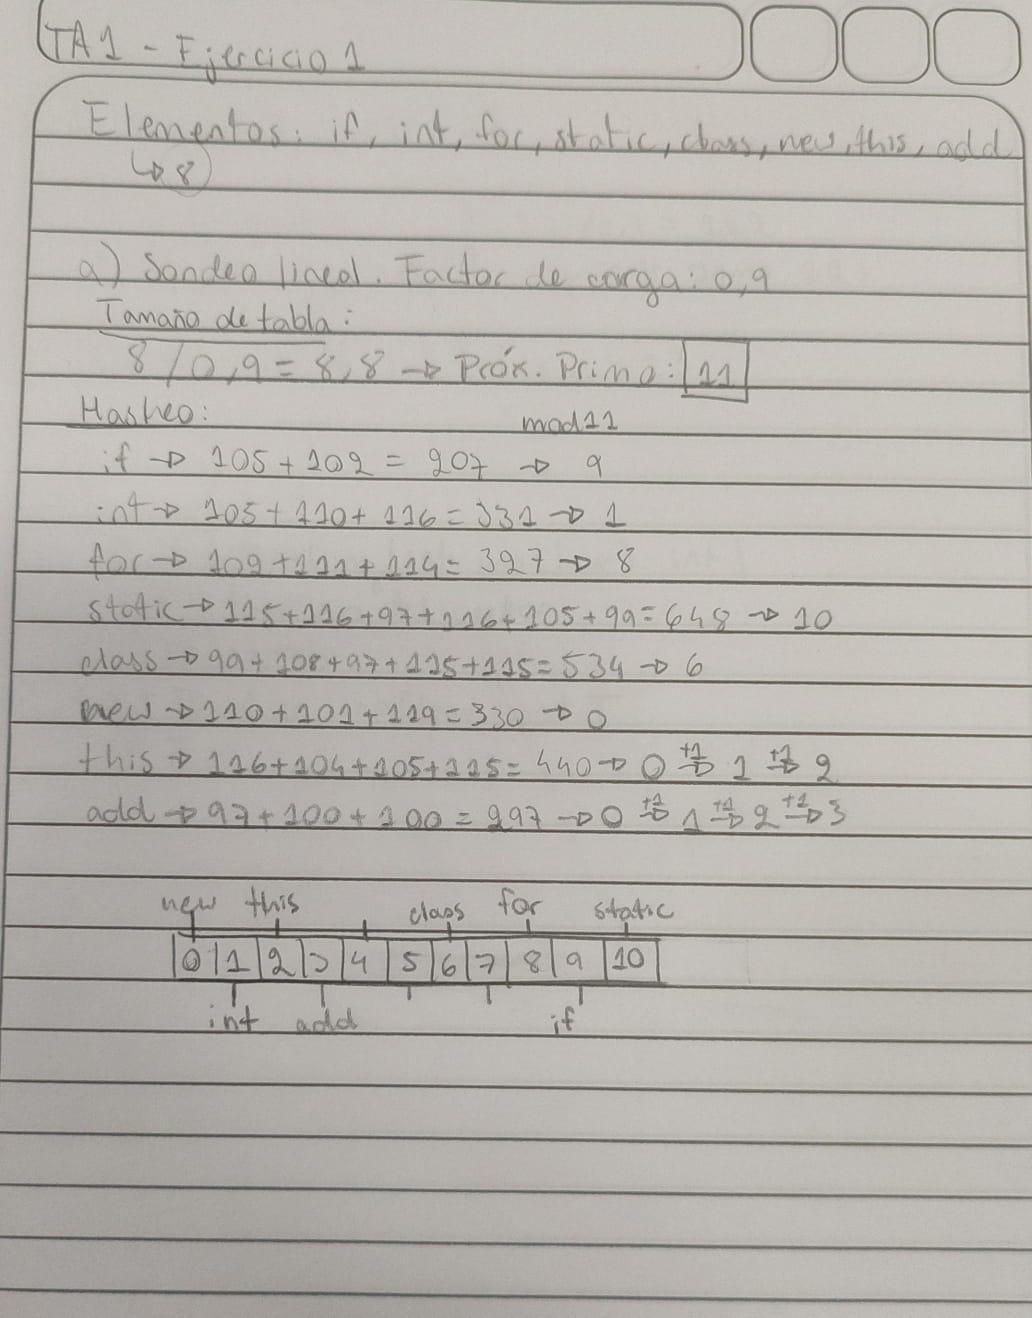 TA1 - Ejercicio 1
Elementos: if, int, for, static, class, new, this, add
↳ 8
a) Sondeo lineal. Factor de carga: 0,9
Tamaño de tabla:
8 / 0,9 = 8,8 → Próx. Primo: 11
Hasheo: mod 11
if → 105 + 102 = 207 → 9
int → 105 + 110 + 116 = 331 → 1
for → 102 + 111 + 114 = 327 → 8
static → 115+116+97+116+105+99 = 648 → 10
class → 99+108+97+115+115 = 534 → 6
new → 110+101+119 = 330 → 0
this → 116+104+105+115 = 440 → 0 +1⇒ 1 +1⇒ 2
add → 97+100+100 = 297 → 0 +1⇒ 1 +1⇒ 2 +1⇒ 3
new this class for static
0 1 2 3 4 5 6 7 8 9 10
int add if